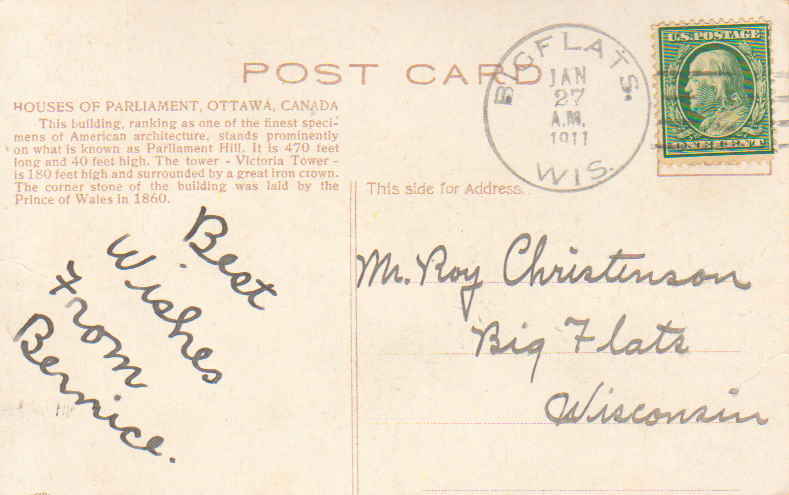 POST CARD
HOUSES OF PARLIAMENT, OTTAWA, CANADA
This building, ranking as one of the finest speci-
mens of American architecture, stands prominently
on what is known as Parliament Hill. It is 470 feet
long and 40 feet high. The tower - Victoria Tower -
is 180 feet high and surrounded by a great iron crown.
The corner stone of the building was laid by the
Prince of Wales in 1860.
BIG FLATS.
JAN
27
A.M.
1911
WIS.
U.S. POSTAGE
ONE CENT
This side for Address.
Best
Wishes
From
Bernice.
Mr. Roy Christenson
Big Flats
Wisconsin